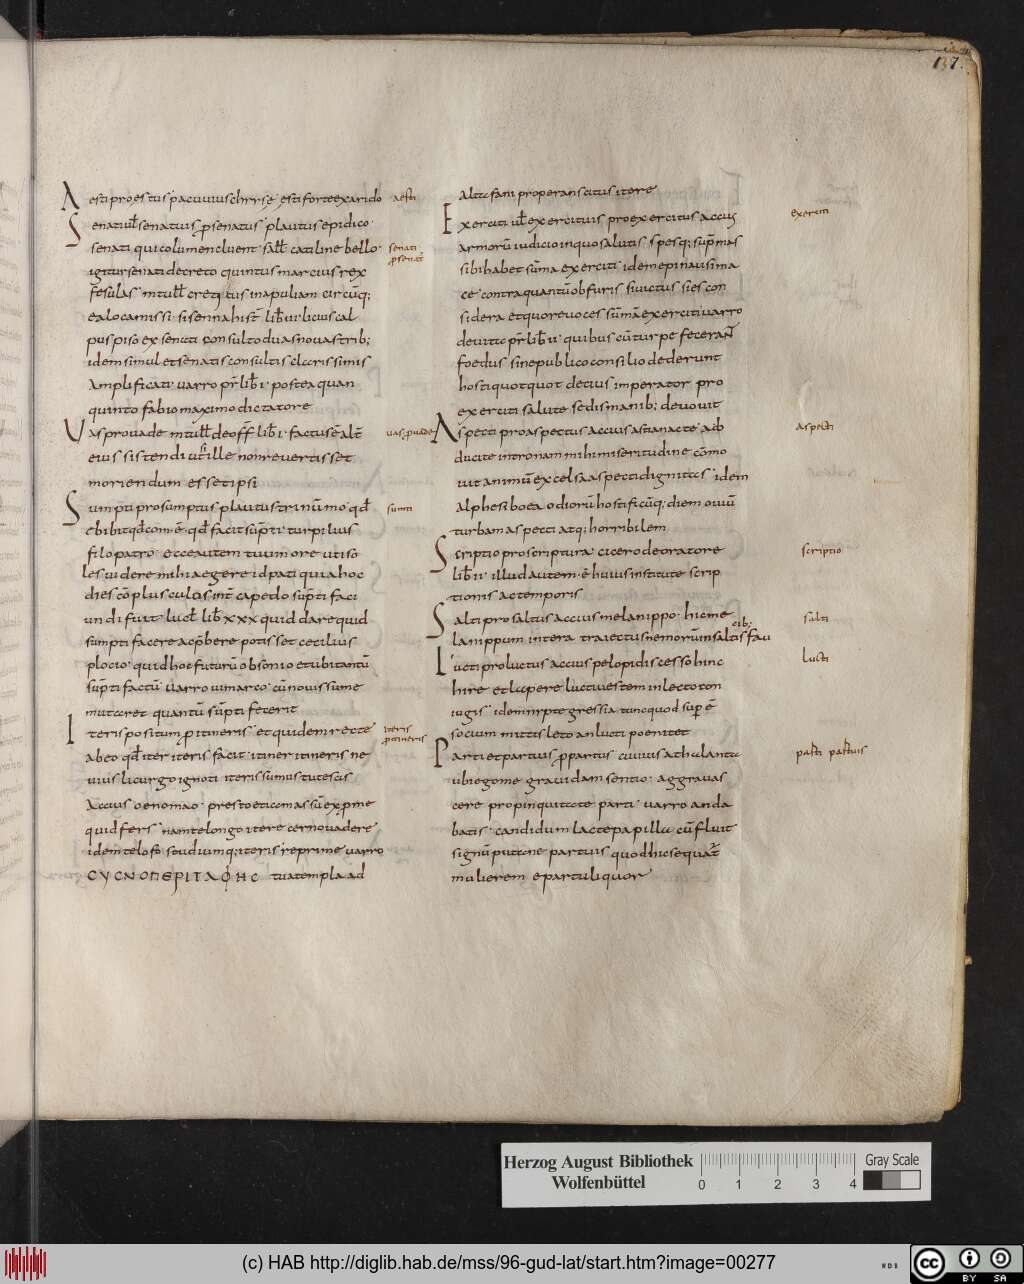 137.
Aesti pro estus pacuuius chryse esti forte exarido
aesti
Senati ut senatuis p senatus plautus epidico
senati qui columen cluent sall catiline bello
senati
p senat
igitur senati decreto quintus marcius rex
fesulas m tull creticus in apuliam circuq;
ea loca missi sisenna hist lib ui lucius cal
purs piso ex senati consulto duas nouas trib;
idem simul et senatis consultis clarissimis
amplificati uarro pr lib i postea quam
quinto fabio maximo dictatore
Uas pro uade m tull de off lib i factus e alt
uas p uade
eius sistendi ut si ille non reuertisset
moriendum esset ipsi
Sumpti pro sumptus plautus trinumo qd
sumti
ebibit qd comest qd facit supti turpilius
filopatro ecce autem tuum ore uti so
les uidere mihi aegere id pati quia hoc
dies co plusculos int capedo supti faci
undi fuit lucil lib xxx quid dare quid
sumpti facere ac phbere potisset cecilius
plocio quid hoc futuru obsonio est ubi tantu
supti factu uarro in marco cu nouissume
mutaret quantu supti fecerit
Iteris positum p itineris et quidem recte
iteris
p itineris
abeo qd iter iteris facit itiner itineris ne
uius licurgo ignoti iteris sumus tute scis
Accius oenomao presto etiam assu exprme
quid fers nam te longo itere cerno uadere
idem telofo studiumq; iteris reprime uarro
CYCNO ΠΕΡΙΤΑΦΗC tua templa ad
alta fani properans citus itere
Exerciti ut exercituis pro exercitus accius
exerciti
armoru iudicio in quo salutis spesq; suprmas
sibi habet suma exerciti idem epinausima
ce contra quantu obfuris si uictus sies con
sidera et quo reuoces summa exerciti uarro
de uita pr lib ii quibus cu turpe feceran
foedus sine publico consilio dederunt
hosti quotquot decius imperator pro
exerciti salute se dis manib; deuouit
Aspecti pro aspectus accius astianacte ab
aspecti
ducite intro nam mihi miseritudine como
uit animu excelsa aspecti dignitas idem
alphesiboea o diru hostificuq; diem o uim
turbam aspecti atq; horribilem
Scriptio pro scriptura cicero de oratore
scriptio
lib ii illud autem e huius institute scrip
tionis ac temporis
Salti pro saltus accius melanippo hic me
salti
cib;
lanippum intera traiectus nemorum in saltis fau
Lucti pro luctus accius pelopidis cesso hinc
lucti
hire et capere luctu uestem in lecto con
iugis idem nyctegressia tunc quod sup e
socium mittis leto an lucti poenitet
Parti et partuis p partus cuuius athalanta
parti partuis
ubi ego me grauidam sentio aggrauas
cere propinquitate parti uarro anda
batis candidum lacte papilla cu fluit
signu putane partuis quod hic sequat
mulierem e partu liquor
Herzog August Bibliothek
Wolfenbüttel
0 1 2 3 4
Gray Scale
(c) HAB http://diglib.hab.de/mss/96-gud-lat/start.htm?image=00277
WDB
cc BY SA